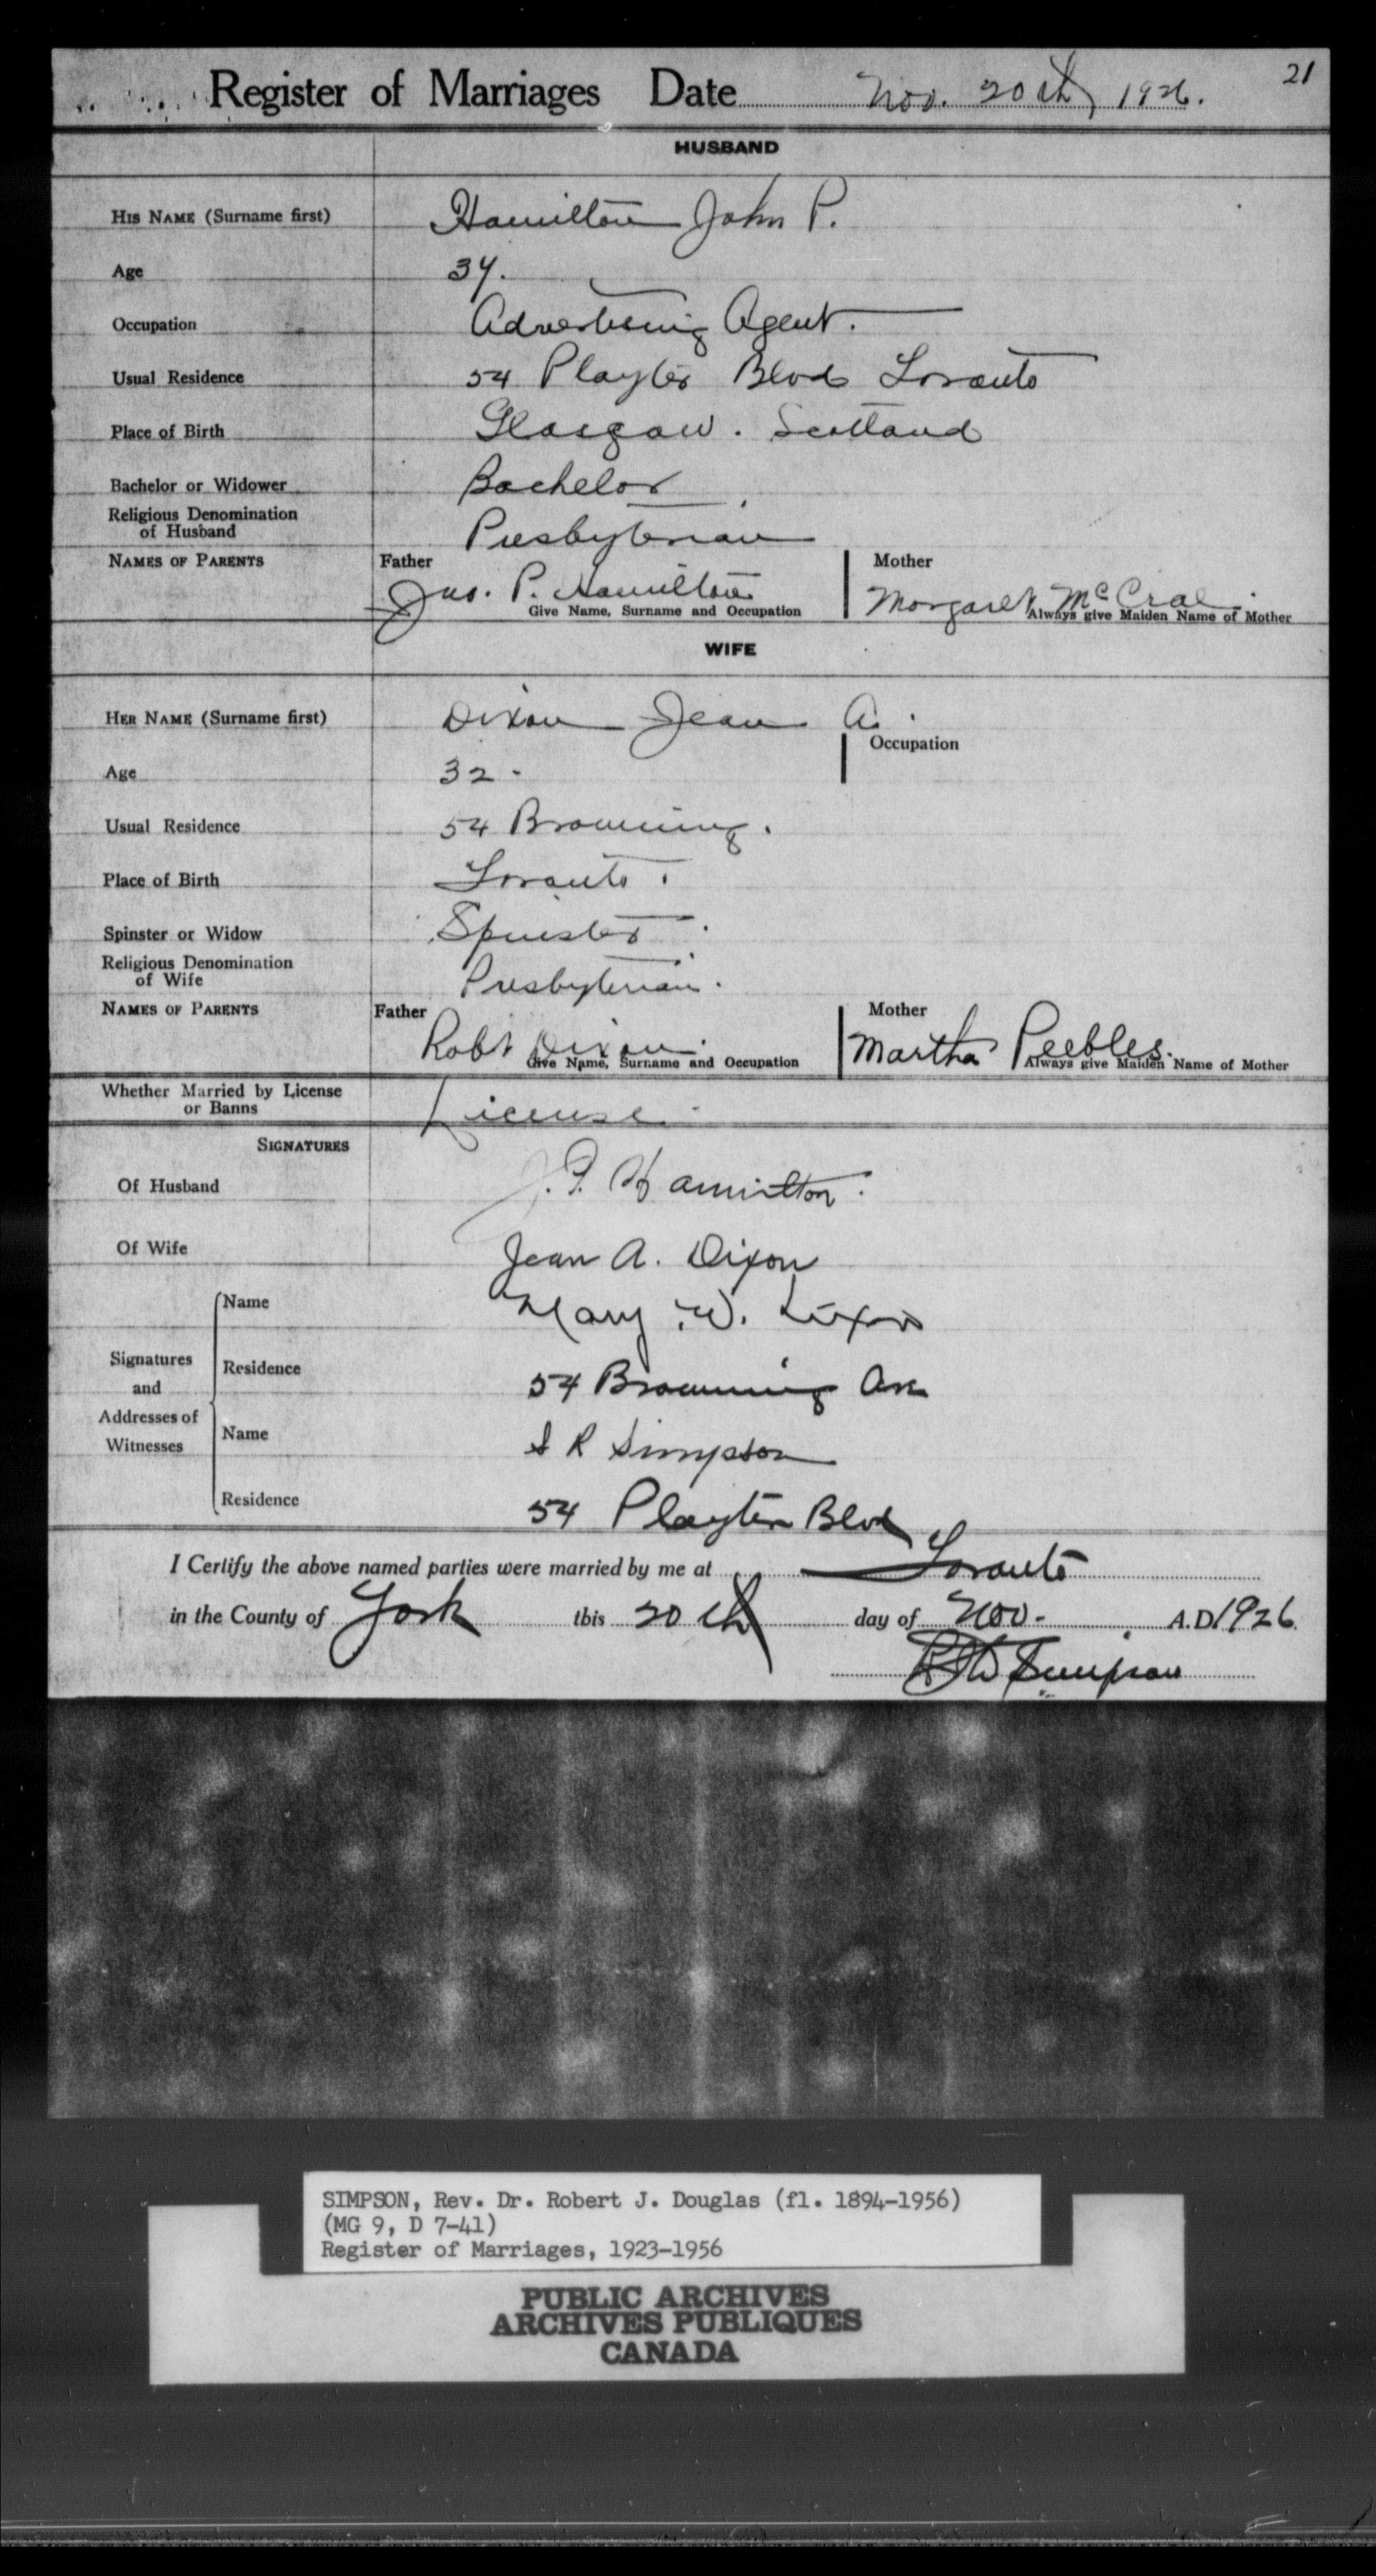 Register of Marriages Date Nov. 20th, 1926. 21
HUSBAND
HIS NAME (Surname first) Hamilton John P.
Age 34.
Occupation Advertising Agent.
Usual Residence 54 Playter Blvd Toronto
Place of Birth Glasgow. Scotland
Bachelor or Widower Bachelor
Religious Denomination
of Husband Presbyterian
NAMES OF PARENTS Father Mother
Jno. P. Hamilton Margaret McCrae.
Give Name, Surname and Occupation Always give Maiden Name of Mother
WIFE
HER NAME (Surname first) Dixon Jean A.
Occupation
Age 32.
Usual Residence 54 Browning.
Place of Birth Toronto.
Spinster or Widow Spinster.
Religious Denomination
of Wife Presbyterian.
NAMES OF PARENTS Father Mother
Robt Dixon. Martha Peebles.
Give Name, Surname and Occupation Always give Maiden Name of Mother
Whether Married by License
or Banns License.
SIGNATURES
Of Husband J. P. Hamilton.
Of Wife Jean A. Dixon
Name Mary W. Dixon
Signatures
and
Addresses of
Witnesses
Residence 54 Browning Ave
Name S R Simpson
Residence 54 Playter Blvd
I Certify the above named parties were married by me at Toronto
in the County of York this 20th day of Nov. A.D. 1926.
Simpson
SIMPSON, Rev. Dr. Robert J. Douglas (fl. 1894-1956)
(MG 9, D 7-41)
Register of Marriages, 1923-1956
PUBLIC ARCHIVES
ARCHIVES PUBLIQUES
CANADA